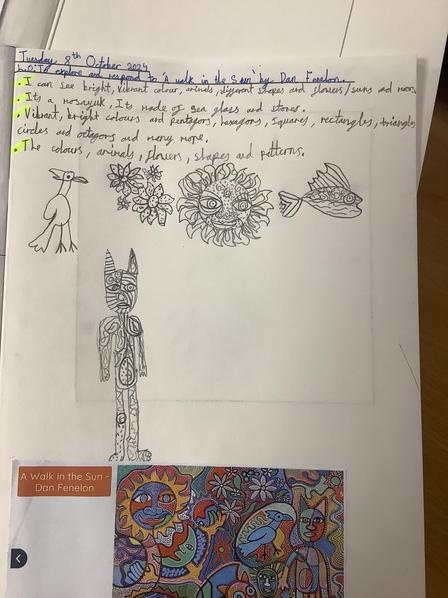 Tuesday 8th October 2024
L.O: To explore and respond to 'A walk in the Sun' by Dan Fenelon.
• I can see bright, vibrant colour, animals, different shapes and flowers/suns and more.
• Its a mosayuk, Its made of sea glass and stones.
• Vibrant, bright colours and pentagons, hexagons, squares, rectangles, triangles
circles and octagons and many more.
• The colours, animals, flowers, shapes and patterns.
A Walk in the Sun -
Dan Fenelon